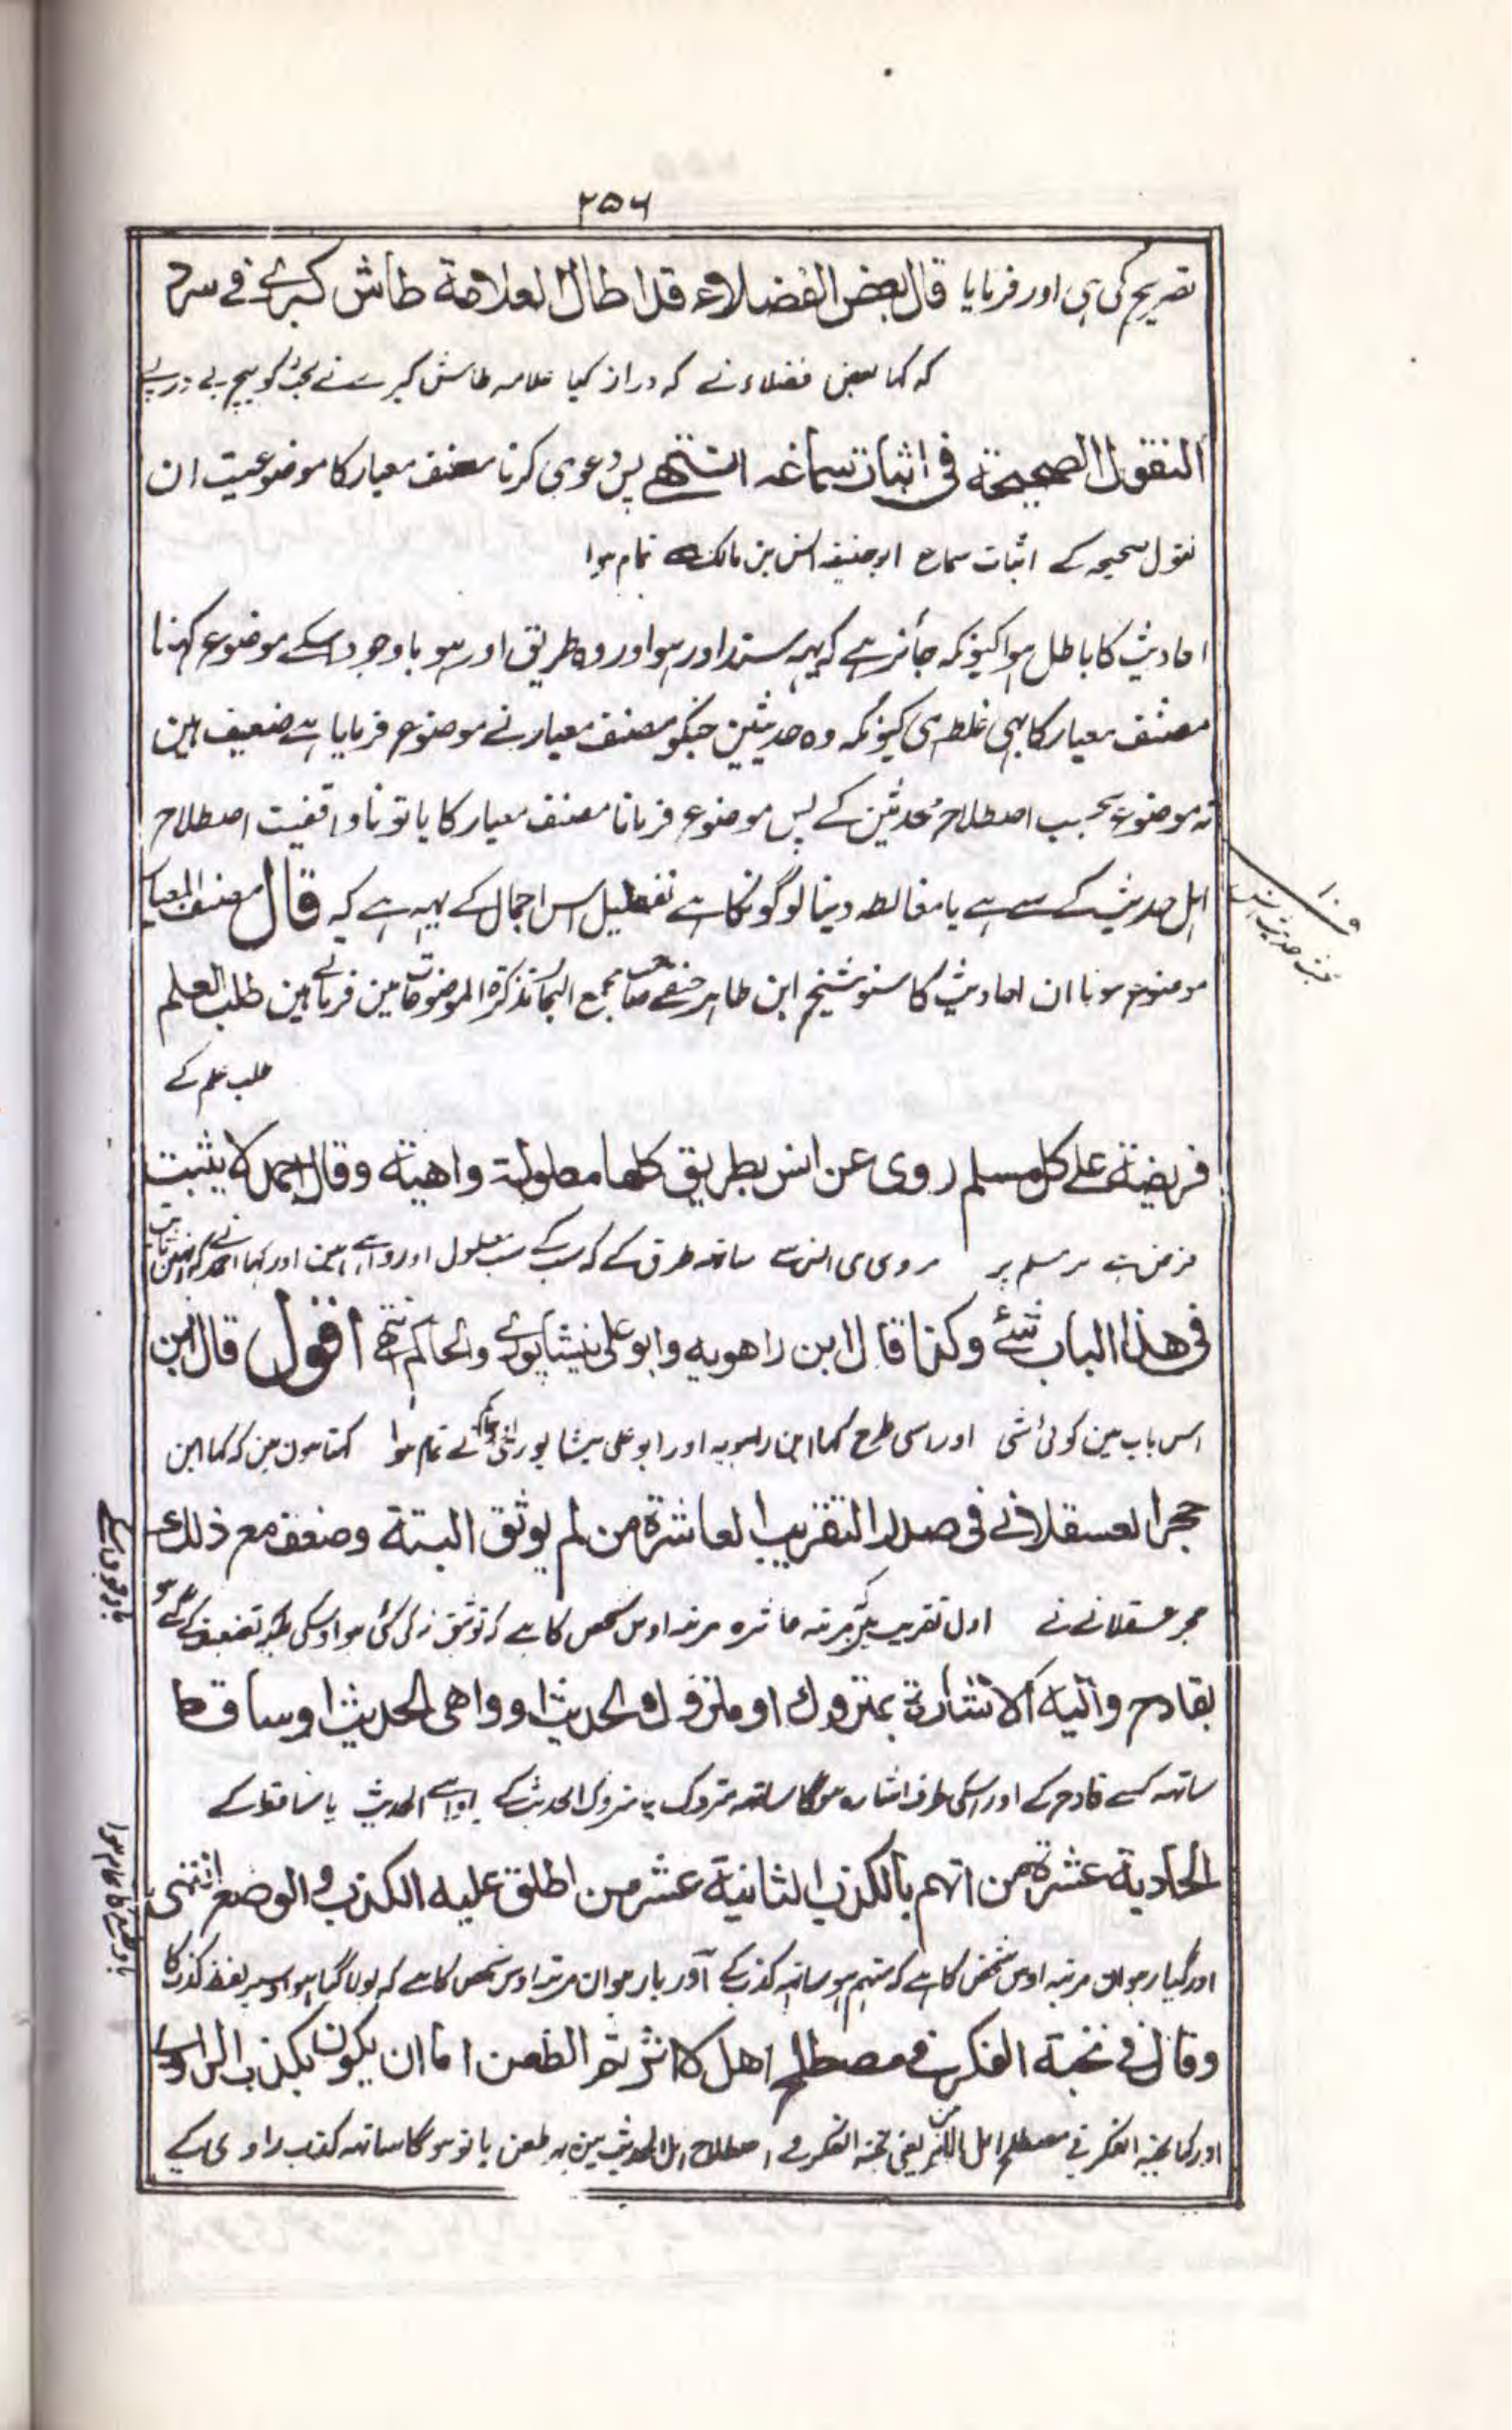 ۲۵۶
تصریح کی ہی اور فرمایا قال بعض الفضلاء قد اطال العلامة طاش کبرے فے سرد
کہ کہا بعض فضلاء نے کہ دراز کیا علامہ طاش کبرے نے بحث کو بیچ پے درپے
النقول الصحیحة فی اثبات سماعه انتهے پس دعوی کرنا مصنف معیار کا موضوعیت ان
نقول صحیحہ کے اثبات سماع ابوحنیفہ انس بن مالک سے تمام ہوا
احادیث کا باطل ہوا کیونکہ جائز ہے کہ یہہ سند اور ہو اور وہ طریق اور ہو باوجود اسکے موضوع کہنا
مصنف معیار کا بہی غلط ہی کیونکہ وہ حدیثین جنکو مصنف معیار نے موضوع فرمایا ہے ضعیف ہین
نہ موضوع بحسب اصطلاح محدثین کے پس موضوع فرمانا مصنف معیار کا یا تو ناواقفیت اصطلاح
اہل حدیث کے سے ہے یا مغالطہ دینا لوگونکا ہے تفصیل اس اجمال کے یہہ ہے کہ قال مصنف المعیار
موضوع ہونا ان احادیث کا سنو شیخ ابن طاہر حنفے صاحب مجمع البحار تذکرة الموضوعات مین فرماتے ہین طلب العلم
طلب علم کے
فریضة علے کل مسلم روی عن انس بطریق کلها معلولة واهیة وقال احمد لا یثبت
فرض ہے ہر مسلم پر مروی ہی انس سے ساتھہ طرق کے کہ سب کے سب معلول اور واہے ہین اور کہا احمد نے کہ نہین ثابت
فی هذا الباب شئ وکذا قال ابن راهویه وابو علی نیشاپوری والحاکم انتهے اقول قال ابن
اس باب مین کوئی شی اور اسی طرح کہا ابن راہویہ اور ابو علی نیشاپوری اور حاکم نے تمام ہوا کہتا ہون مین کہ کہا ابن
حجر العسقلانے فی صدر التقریب العاشرة من لم یوثق البتة وضعف مع ذلك
حجر عسقلانے نے اول تقریب مرتبہ عاشرہ مرتبہ اوس شخص کا ہے کہ توثیق نہ کی گئی ہو اوسکی تضعیف کے گئے ہو
بقادح والیه الاشارة بمتروك او متروك الحدیث او واهی الحدیث او ساقط
ساتھہ کسے قادح کے اور اسکی طرف اشارہ ہوگا ساتھہ متروک یا متروک الحدیث کے یا واہے الحدیث یا ساقط کے
الحادیة عشرة من اتهم بالکذب الثانیة عشر من اطلق علیه الکذب والوضع انتهی
اور گیارہوان مرتبہ اوس شخص کا ہے کہ متہم ہو ساتھہ کذب کے اور بارہوان مرتبہ اوس شخص کا ہے کہ بولا گیا ہو اوسپر لفظ کذب کا
وقال فی نخبة الفکر فی مصطلح اهل الاثر ثم الطعن اما ان یکون بکذب الراوی
اور کہا نخبۃ الفکر فی مصطلح اہل الاثر مین یعنی نخبۃ الفکر فے اصطلاح اہل الحدیث مین پہر طعن یا تو ہوگا ساتھہ کذب راوی کے